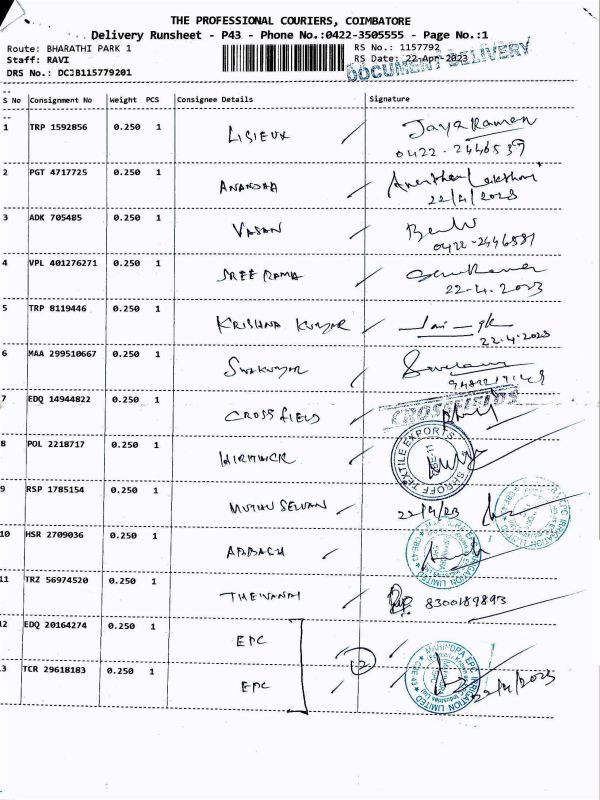 THE PROFESSIONAL COURIERS, COIMBATORE
Delivery Runsheet - P43 - Phone No.:0422-3505555 - Page No.:1
Route: BHARATHI PARK 1
RS No.: 1157792
Staff: RAVI
RS Date: 22-Apr-2023
DRS No.: DCJB115779201
DOCUMENT DELIVERY
S No Consignment No Weight PCS Consignee Details Signature
1 TRP 1592856 0.250 1 LISIEUX Jaya Raman
0422-2446539
2 PGT 4717725 0.250 1 ANANDHA
22/4/2023
3 ADK 705485 0.250 1 VASAN
0422-2446581
4 VPL 401276271 0.250 1 SREE RAMA
22-4-2023
5 TRP 8119446 0.250 1 KRISHNA KUMAR
22.4.2023
6 MAA 299510667 0.250 1 SIVAKUMAR
7 EDQ 14944822 0.250 1 CROSSFIELD CROSSFIELDS
8 POL 2218717 0.250 1 TEXTILE EXPORTS
9 RSP 1785154 0.250 1 MUTHU SELVAN 22/4/23
EPC IRRIGATION LIMITED
10 HSR 2709036 0.250 1
EPC IRRIGATION LIMITED CBE-43
11 TRZ 56974520 0.250 1 8300189893
12 EDQ 20164274 0.250 1 EPC
13 TCR 29618183 0.250 1 EPC
MAHINDRA EPC IRRIGATION LIMITED CBE-43
22/4/2023